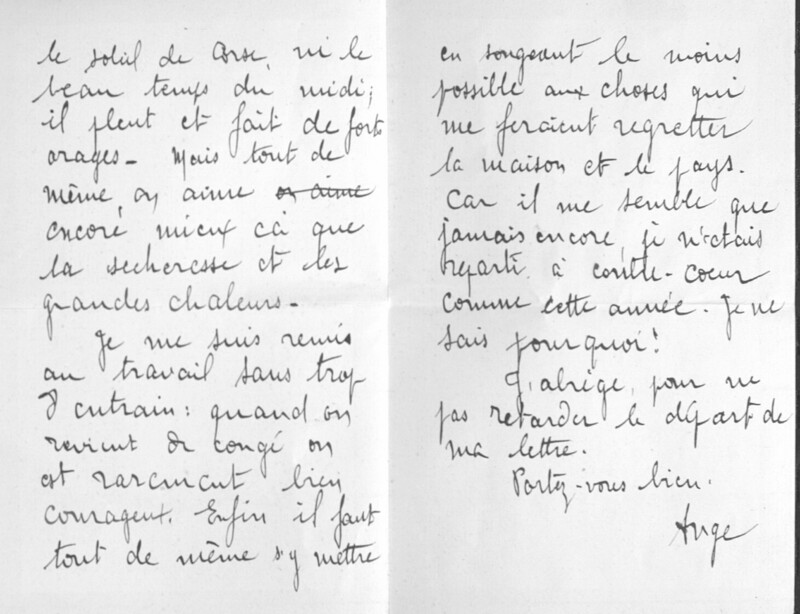 le soleil de Corse, ni le
beau temps du midi;
il pleut et fait de forts
orages - Mais tout de
même, on aime on aime
encore mieux cà que
la secheresse et les
grandes chaleurs -
Je me suis remis
au travail sans trop
d'entrain: quand on
revient de congé on
est rarement bien
courageux. Enfin il faut
tout de même s'y mettre
en songeant le moins
possible aux choses qui
me feraient regretter
la maison et le pays.
Car il me semble que
jamais encore, je n'étais
reparti à contre-coeur
comme cette année. Je ne
sais pourquoi!
J'abrège, pour ne
pas retarder le départ de
ma lettre.
Portez-vous bien.
Ange